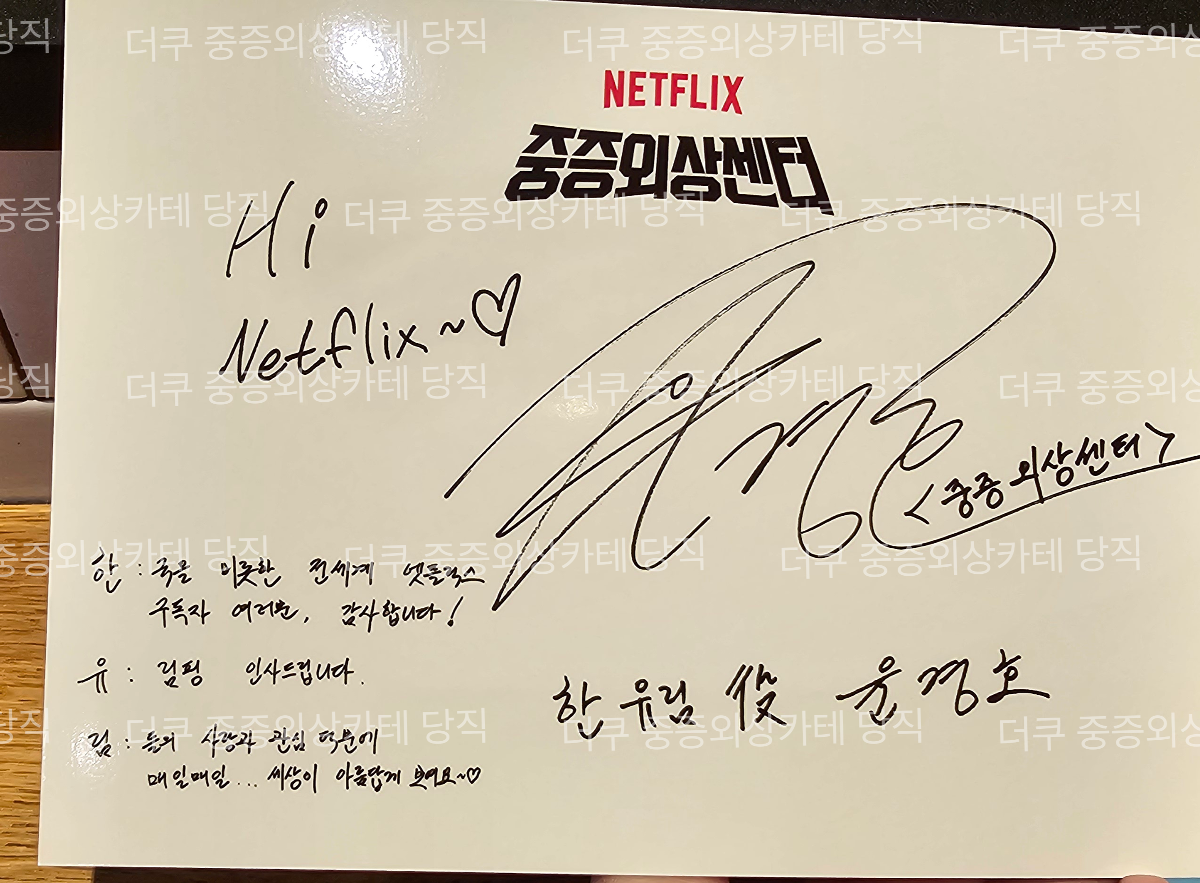 NETFLIX
중증외상센터
Hi
Netflix~♡
<중증외상센터>
한 : 국을 비롯한 전세계 넷플릭스
구독자 여러분, 감사합니다!
유 : 림핑 인사드립니다.
림 : 들의 사랑과 관심 덕분에
매일매일... 세상이 아름답게 보여요~♡
한유림 役 윤경호
더쿠 중증외상카테 당직